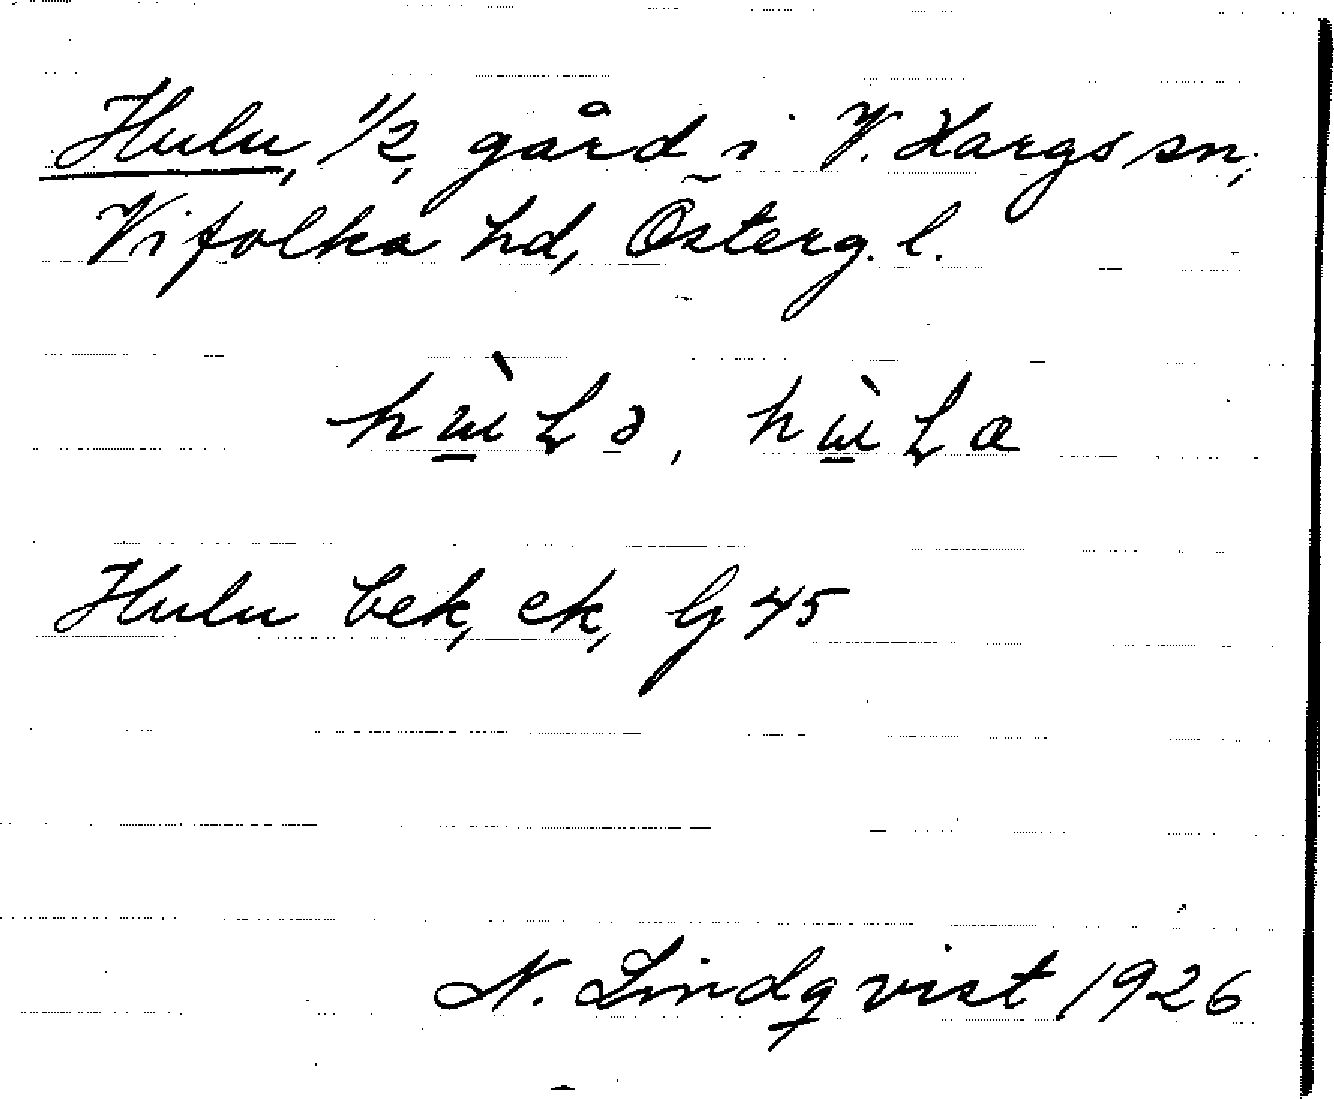 Hulu, 1/2, gård i V. Hargs sn,
Vifolka hd, Österg. l.
hɯ̀Lə, hɯ̀La
Hulu bek, ek, Gj 45
N. Lindqvist 1926